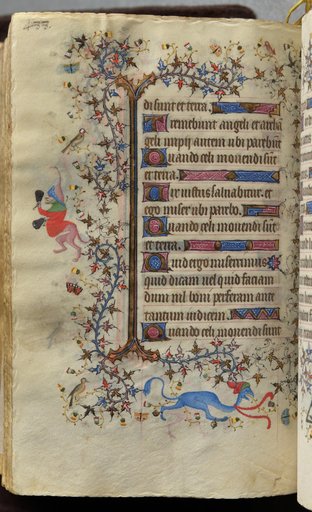 di sunt et terra.
Tremebunt angeli et archa
geli impii autem ubi parebūt
Quando celi movendi sūt
et terra.
Vir iustus salvabitur. et
ego miser ubi parebo.
Quando celi movendi sūt
et terra.
Quid ergo miserrimus
quid dicam vel quid faciam
dum nil boni perferam ante
tantum iudicem.
Quando celi movendi sunt